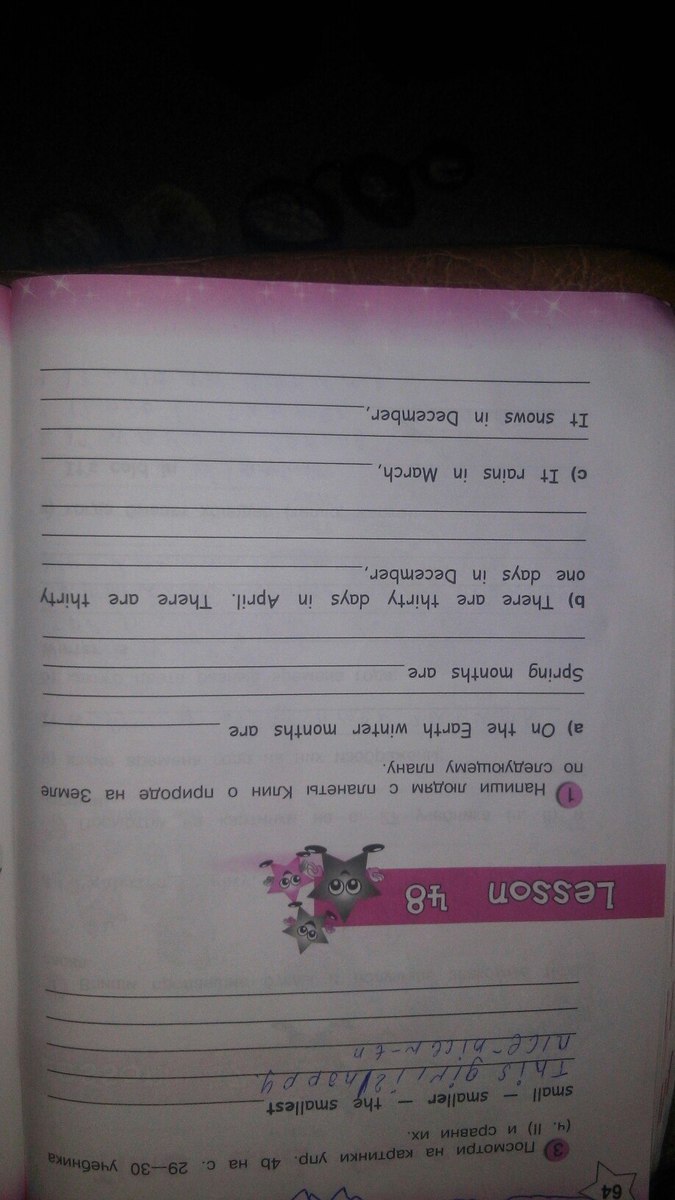 64
3 Посмотри на картинки упр. 4b на с. 29—30 учебника
(ч. II) и сравни их.
small — smaller — the smallest
This girl is happy.
nice-nicer-
Lesson 48
1 Напиши людям с планеты Клин о природе на Земле
по следующему плану.
a) On the Earth winter months are
Spring months are
b) There are thirty days in April. There are thirty
one days in December,
c) It rains in March,
It snows in December,